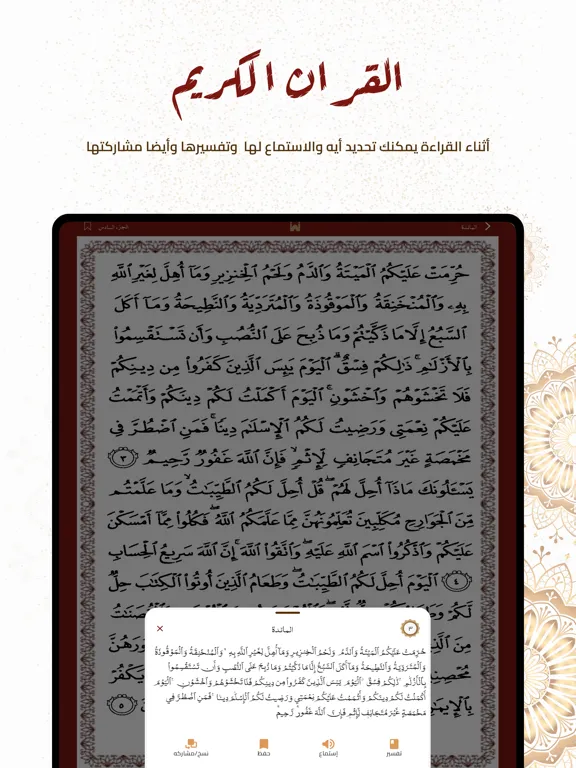 القران الكريم
أثناء القراءة يمكنك تحديد أيه والاستماع لها وتفسيرها وأيضا مشاركتها
المائدة
الجزء السادس
حُرِّمَتْ عَلَيْكُمُ الْمَيْتَةُ وَالدَّمُ وَلَحْمُ الْخِنزِيرِ وَمَا أُهِلَّ لِغَيْرِ اللَّهِ
بِهِ وَالْمُنْخَنِقَةُ وَالْمَوْقُوذَةُ وَالْمُتَرَدِّيَةُ وَالنَّطِيحَةُ وَمَا أَكَلَ
السَّبُعُ إِلَّا مَا ذَكَّيْتُمْ وَمَا ذُبِحَ عَلَى النُّصُبِ وَأَن تَسْتَقْسِمُوا
بِالْأَزْلَٰمِ ۚ ذَٰلِكُمْ فِسْقٌ ۗ الْيَوْمَ يَئِسَ الَّذِينَ كَفَرُوا مِن دِينِكُمْ
فَلَا تَخْشَوْهُمْ وَاخْشَوْنِ ۚ الْيَوْمَ أَكْمَلْتُ لَكُمْ دِينَكُمْ وَأَتْمَمْتُ
عَلَيْكُمْ نِعْمَتِي وَرَضِيتُ لَكُمُ الْإِسْلَٰمَ دِينًا ۚ فَمَنِ اضْطُرَّ فِي
مَخْمَصَةٍ غَيْرَ مُتَجَانِفٍ لِّإِثْمٍ ۙ فَإِنَّ اللَّهَ غَفُورٌ رَّحِيمٌ ٣
يَسْأَلُونَكَ مَاذَا أُحِلَّ لَهُمْ ۖ قُلْ أُحِلَّ لَكُمُ الطَّيِّبَٰتُ ۙ وَمَا عَلَّمْتُم
مِّنَ الْجَوَارِحِ مُكَلِّبِينَ تُعَلِّمُونَهُنَّ مِمَّا عَلَّمَكُمُ اللَّهُ ۖ فَكُلُوا مِمَّا أَمْسَكْنَ
عَلَيْكُمْ وَاذْكُرُوا اسْمَ اللَّهِ عَلَيْهِ ۖ وَاتَّقُوا اللَّهَ ۚ إِنَّ اللَّهَ سَرِيعُ الْحِسَابِ
٤ الْيَوْمَ أُحِلَّ لَكُمُ الطَّيِّبَٰتُ ۖ وَطَعَامُ الَّذِينَ أُوتُوا الْكِتَٰبَ حِلٌّ
٣
المائدة
حُرِّمَتْ عَلَيْكُمُ الْمَيْتَةُ وَالدَّمُ وَلَحْمُ الْخِنزِيرِ وَمَا أُهِلَّ لِغَيْرِ اللَّهِ بِهِ وَالْمُنْخَنِقَةُ وَالْمَوْقُوذَةُ
وَالْمُتَرَدِّيَةُ وَالنَّطِيحَةُ وَمَا أَكَلَ السَّبُعُ إِلَّا مَا ذَكَّيْتُمْ وَمَا ذُبِحَ عَلَى النُّصُبِ وَأَن تَسْتَقْسِمُوا
بِالْأَزْلَٰمِ ۚ ذَٰلِكُمْ فِسْقٌ ۗ الْيَوْمَ يَئِسَ الَّذِينَ كَفَرُوا مِن دِينِكُمْ فَلَا تَخْشَوْهُمْ وَاخْشَوْنِ ۚ الْيَوْمَ
أَكْمَلْتُ لَكُمْ دِينَكُمْ وَأَتْمَمْتُ عَلَيْكُمْ نِعْمَتِي وَرَضِيتُ لَكُمُ الْإِسْلَٰمَ دِينًا ۚ فَمَنِ اضْطُرَّ فِي
مَخْمَصَةٍ غَيْرَ مُتَجَانِفٍ لِّإِثْمٍ ۙ فَإِنَّ اللَّهَ غَفُورٌ رَّحِيمٌ
تفسير
إستماع
حفظ
نسخ/مشاركه